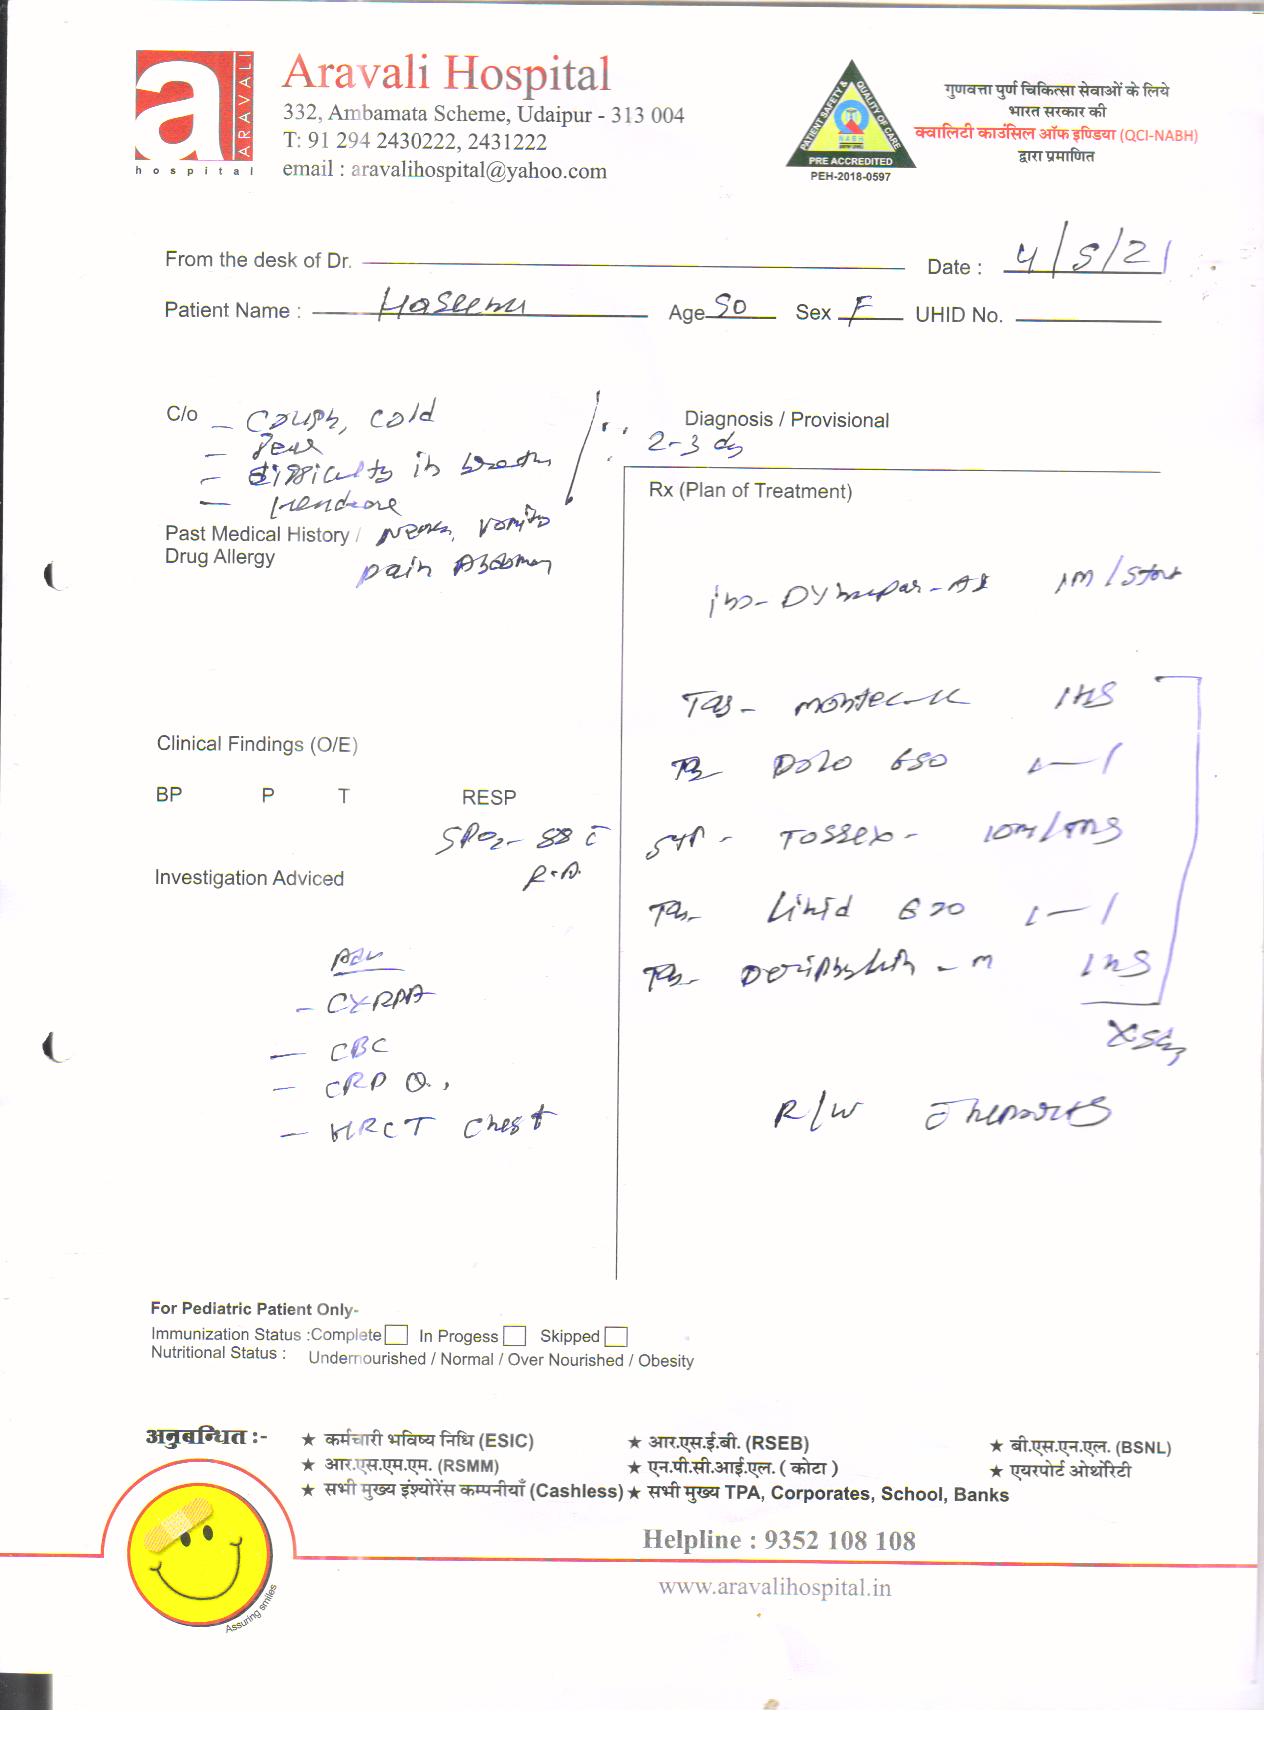 a ARAVALI
hospital
Aravali Hospital
332, Ambamata Scheme, Udaipur - 313 004
T: 91 294 2430222, 2431222
email : aravalihospital@yahoo.com
PATIENT SAFETY & QUALITY OF CARE
NABH
PRE ACCREDITED
PEH-2018-0597
गुणवत्ता पुर्ण चिकित्सा सेवाओं के लिये
भारत सरकार की
क्वालिटी काउंसिल ऑफ इण्डिया (QCI-NABH)
द्वारा प्रमाणित
From the desk of Dr.
Date : 4/5/21
Patient Name : Haseenu Age 50 Sex F UHID No.
C/o - Cough, cold
Diagnosis / Provisional
2-3
- difficulty in
Rx (Plan of Treatment)
Past Medical History /
Drug Allergy
pain Abdomen
1M/Stat
Tab- Montec-LC 1HS
Clinical Findings (O/E)
Dolo 650 1—1
BP P T RESP
SPO2- 88 c̄
R.A.
Syp - Tossex -
Investigation Adviced
1—1
Adv
- M 1HS
- CBC
- CRP Q.
- HRCT Chest
R/W
For Pediatric Patient Only-
Immunization Status :Complete In Progess Skipped
Nutritional Status : Undernourished / Normal / Over Nourished / Obesity
अनुबन्धित :-
★ कर्मचारी भविष्य निधि (ESIC) ★ आर.एस.ई.बी. (RSEB) ★ बी.एस.एन.एल. (BSNL)
★ आर.एस.एम.एम. (RSMM) ★ एन.पी.सी.आई.एल. ( कोटा ) ★ एयरपोर्ट ओथॉरिटी
★ सभी मुख्य इंश्योरेंस कम्पनीयाँ (Cashless) ★ सभी मुख्य TPA, Corporates, School, Banks
Helpline : 9352 108 108
www.aravalihospital.in
Assuring smiles